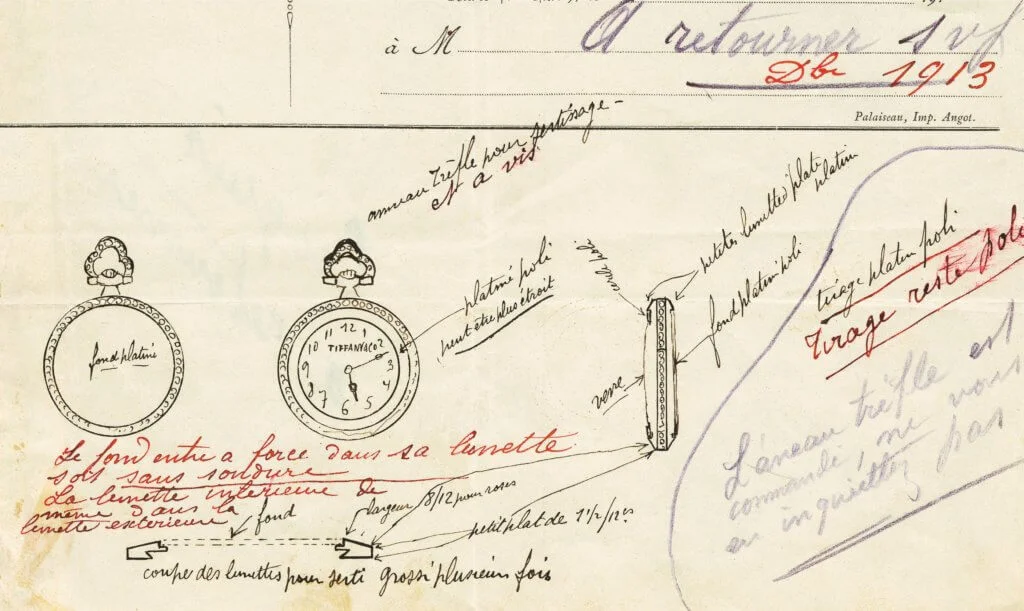 à M
A retourner svp
Dbr 1913
Palaiseau, Imp. Angot.
anneau trèfle pour sertissage -
N a vis
platine poli
peut être plus étroit
petites lunettes plate
platine
fond platin poli
verre
tirage platin poli
tirage reste poli
fond platiné
11 12 1
10 TIFFANY&CO 2
9 3
8 4
7 6 5
L'aneau trèfle est
commandé, ne vous
en inquiettez pas
Le fond entre a force dans sa lunette
soit sans soudure
La lunette interieure de
même dans la
lunette exterieure
fond
largeur 8/12 pour roses
petit plat de 1 1/2/12es
coupe des lunettes pour serti grossi plusieurs fois